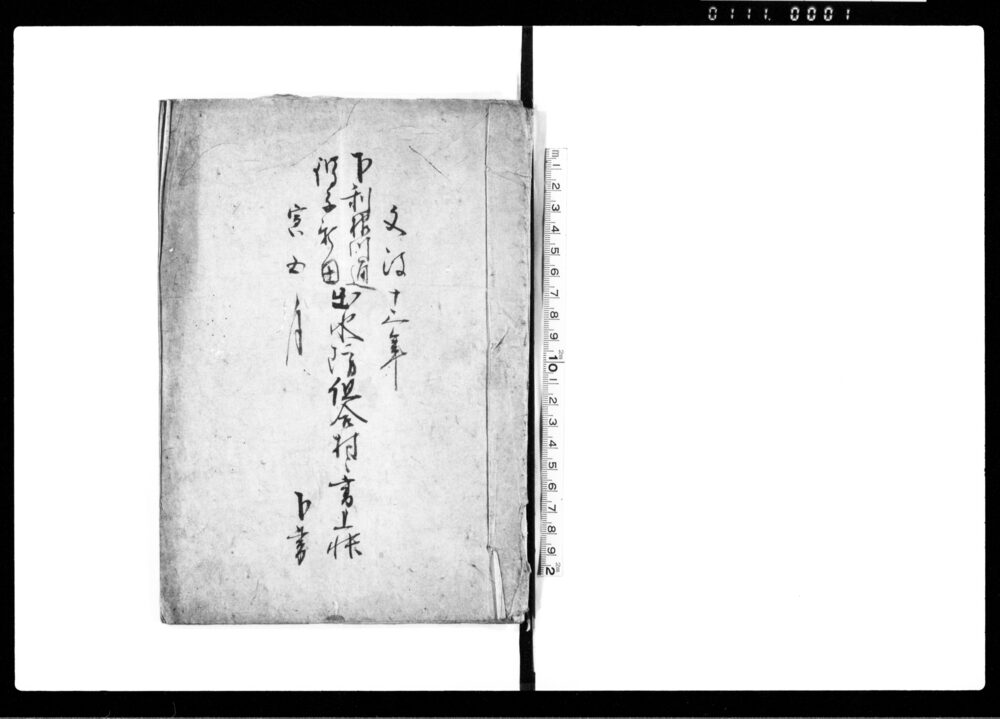 0111. 0001
文政十三年
下利根川通
子新田
出水防組合村々書上帳
寅五月
下書
m 1 2 3 4 5 6 7 8 9 10 1 2 3 4 5 6 7 8 9 2